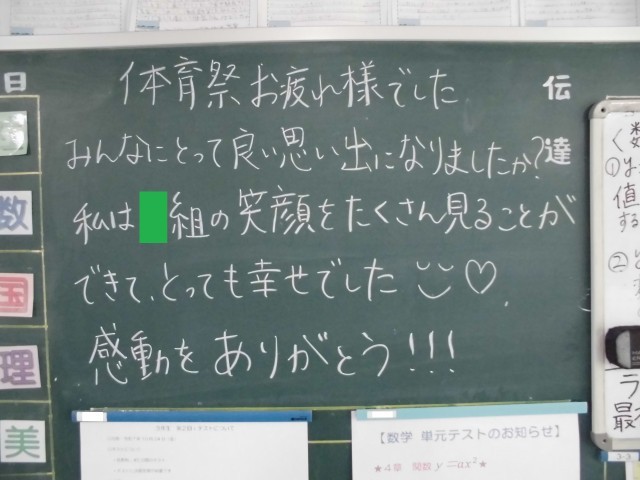 体育祭お疲れ様でした
みんなにとって良い思い出になりましたか?
私は 組の笑顔をたくさん見ることが
できて、とっても幸せでした ♡.
感動をありがとう!!!
伝達
日
数
国
理
美
【数学 単元テストのお知らせ】
★4章 関数 y=ax²★
数
く
①
値
する
②
ラ
最